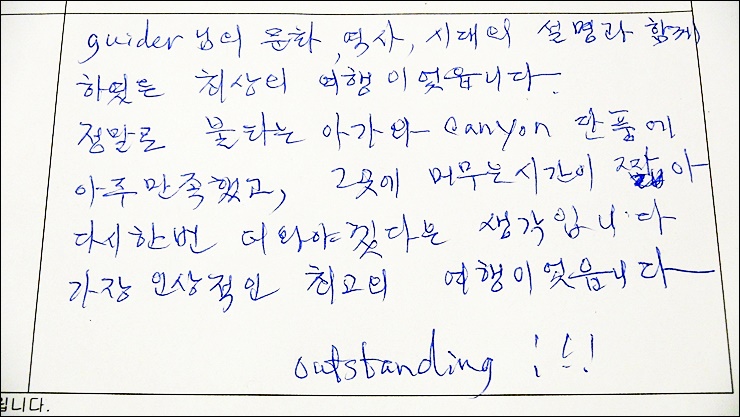 guider님의 문화, 역사, 시대의 설명과 함께
하였든 최상의 여행이었읍니다.
정말로 불타는 아가와 canyon 단풍에
아주만족했고, 그곳에 머무는시간이 짧아
다시한번 더와야겠다는 생각입니다
가장 인상적인 최고의 여행이었읍니다
outstanding !!!
립니다.